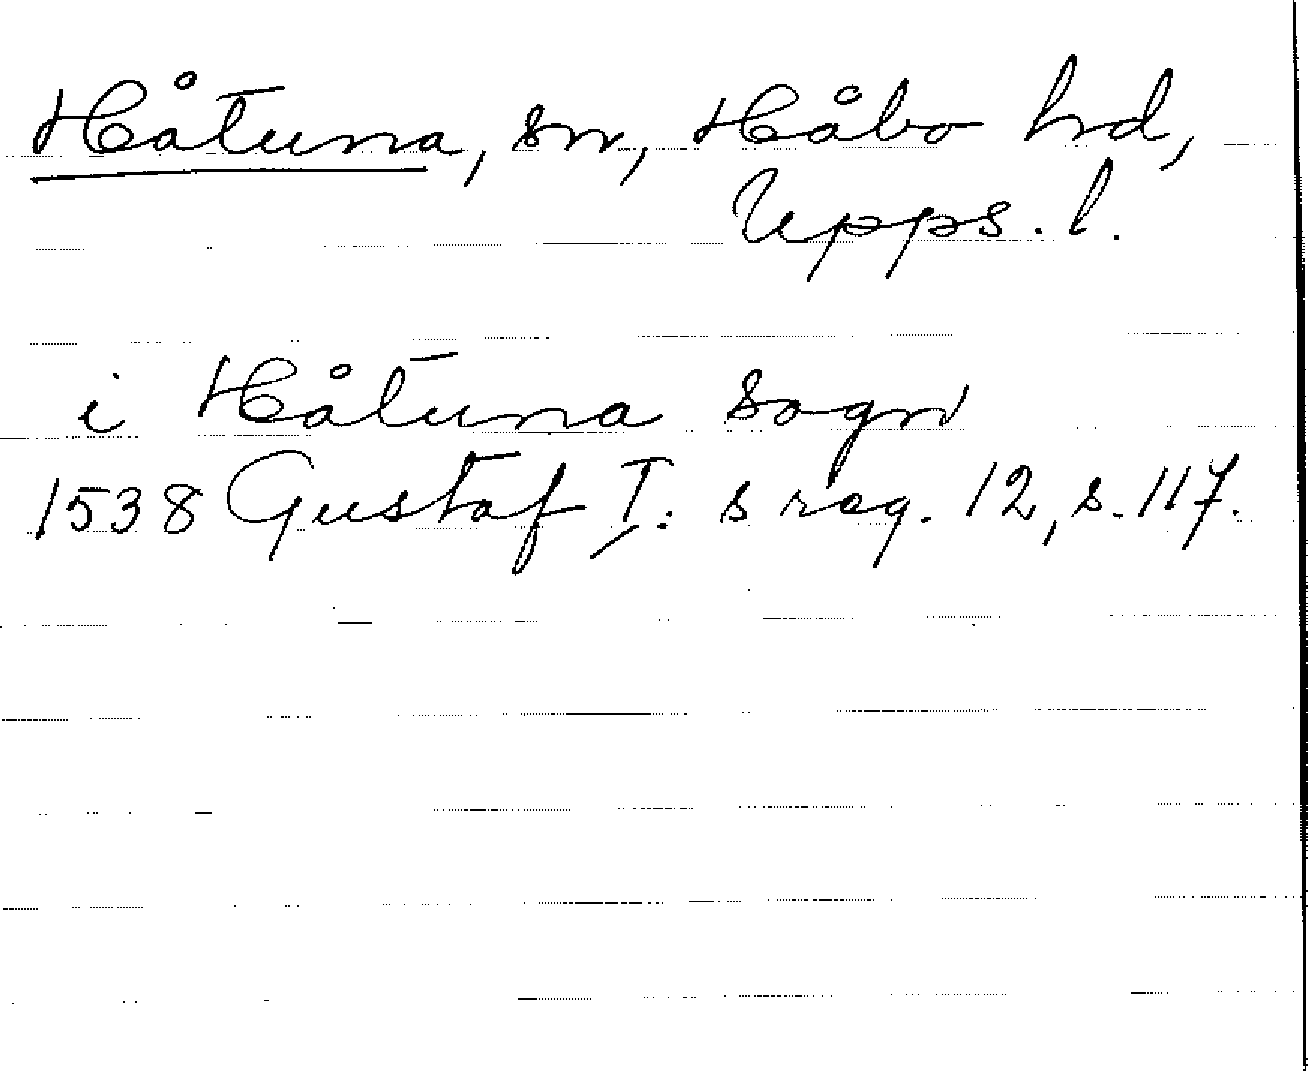 Håtuna, sn, Håbo hrd,
Upps. l.
i Håtuna sogn
1538 Gustaf I: s reg. 12, s. 117.